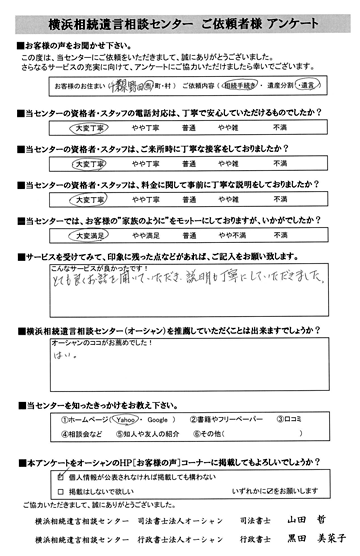 横浜相続遺言相談センター ご依頼者様 アンケート
■お客様の声をお聞かせ下さい。
この度は、当センターにご依頼をいただきまして、誠にありがとうございました。
さらなるサービスの充実に向けて、アンケートにご協力いただけましたら幸いでございます。
お客様のお住まい（千葉県野田市・町・村） ご依頼内容（相続手続き・ 遺産分割 ・遺言）
■当センターの資格者・スタッフの電話対応は、丁寧で安心していただけるものでしたか？
大変丁寧 やや丁寧 普通 やや雑 不満
■当センターの資格者・スタッフは、ご来所時に丁寧な接客をしておりましたか？
大変丁寧 やや丁寧 普通 やや雑 不満
■当センターの資格者・スタッフは、料金に関して事前に丁寧な説明をしておりましたか？
大変丁寧 やや丁寧 普通 やや雑 不満
■当センターでは、お客様の"家族のように"をモットーにしておりますが、いかがでしたか？
大変満足 やや満足 普通 やや不満 不満
■サービスを受けてみて、印象に残った点などがあれば、ご記入をお願い致します。
こんなサービスが良かったです！
とても良くお話を聞いていただき、説明も丁寧にしていただきました。
■横浜相続遺言相談センター（オーシャン）を推薦していただくことは出来ますでしょうか？
オーシャンのココがお薦めでした！
はい。
■当センターを知ったきっかけをお教え下さい。
①ホームページ（Yahoo・ Google ） ②書籍やフリーペーパー ③口コミ
④相談会など ⑤知人や友人の紹介 ⑥その他（ ）
■本アンケートをオーシャンのHP[お客様の声]コーナーに掲載してもよろしいでしょうか？
☑ 個人情報が公表されなければ掲載しても構わない
□ 掲載はしないで欲しい いずれかに☑をお願いします
ご協力いただきまして、誠にありがとうございました。
横浜相続遺言相談センター 司法書士法人オーシャン 司法書士 山田 哲
横浜相続遺言相談センター 行政書士法人オーシャン 行政書士 黒田 美菜子